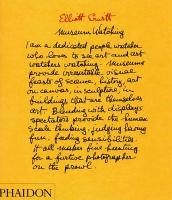 Elliott Erwitt
Museum Watching
I am a dedicated people watcher
who loves to see art and art
watchers watching. Museums
provide irresistible visual
feasts of science, history, art
on canvas, in sculpture, in
buildings that are themselves
art. Blending with displays
spectators provide the human
scale thinking, judging having
fun, feeding sensibilities
It all makes fine hunting
for a furtive photographer
on the prowl.
PHAIDON